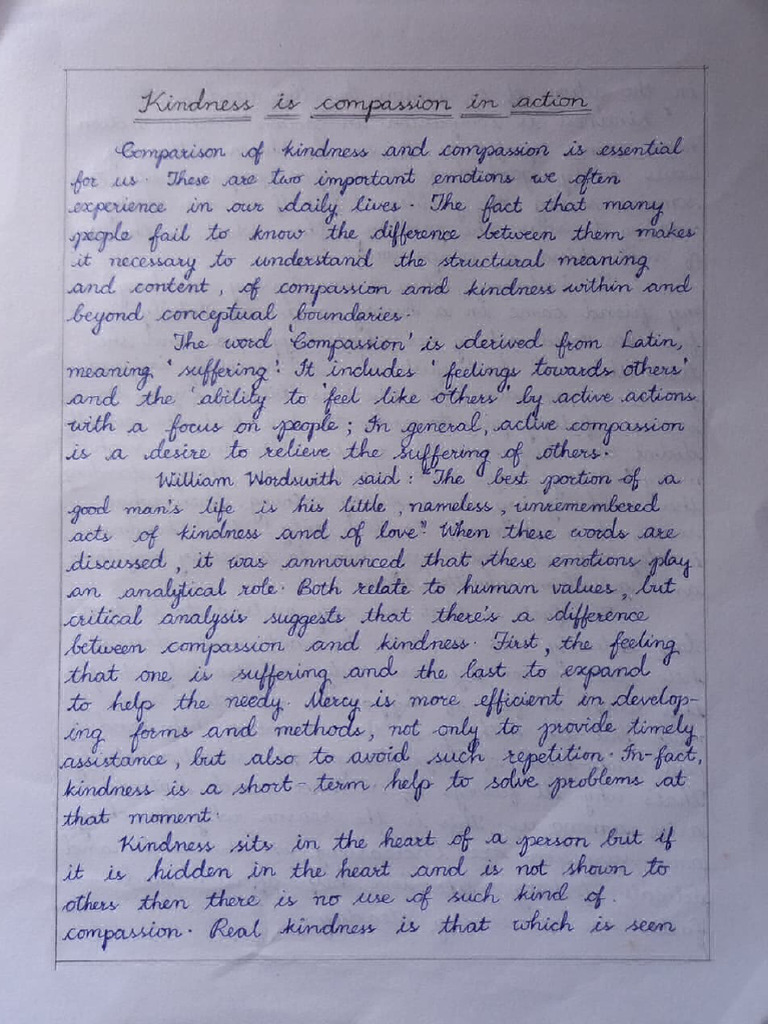 Kindness is compassion in action
Comparison of kindness and compassion is essential
for us. These are two important emotions we often
experience in our daily lives. The fact that many
people fail to know the difference between them makes
it necessary to understand the structural meaning
and content, of compassion and kindness within and
beyond conceptual boundaries.
The word 'Compassion' is derived from Latin,
meaning 'suffering'. It includes 'feelings towards others'
and the 'ability to 'feel like others' by active actions
with a focus on people; In general, active compassion
is a desire to relieve the suffering of others.
William Wordswith said: "The best portion of a
good man's life is his little, nameless, unremembered
acts of kindness and of love". When these words are
discussed, it was announced that these emotions play
an analytical role. Both relate to human values, but
critical analysis suggests that there's a difference
between compassion and kindness. First, the feeling
that one is suffering and the last to expand
to help the needy. Mercy is more efficient in develop-
ing forms and methods, not only to provide timely
assistance, but also to avoid such repetition. In-fact,
kindness is a short-term help to solve problems at
that moment.
Kindness sits in the heart of a person but if
it is hidden in the heart and is not shown to
others then there is no use of such kind of.
compassion. Real kindness is that which is seen